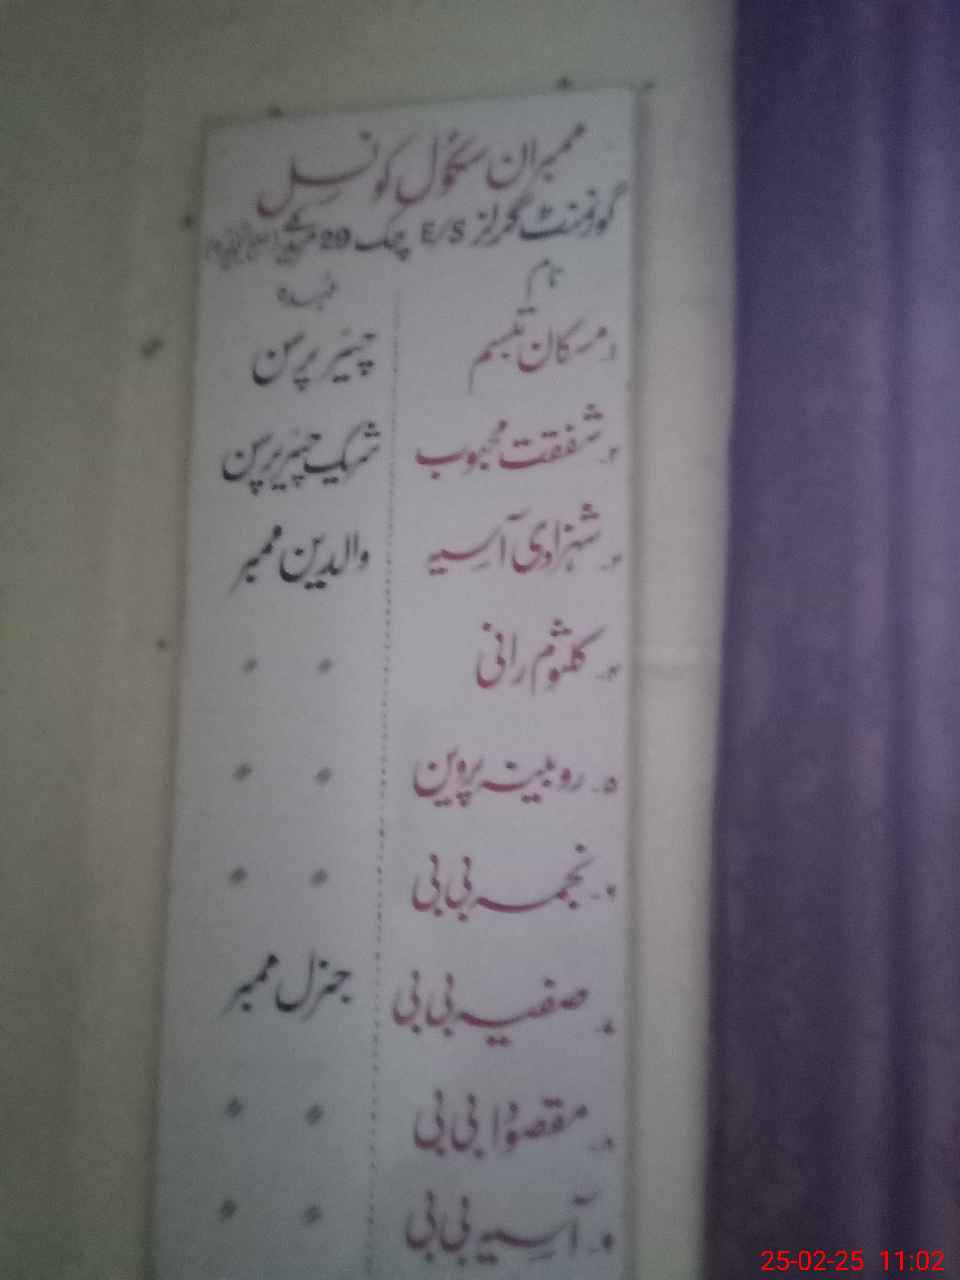 ممبران سکول کونسل
گورنمنٹ گرلز E/S چک 29
نام عہدہ
۱۔ مسکان تبسم چئیر پرسن
۲۔ شفقت محبوب شریک چئیر پرسن
۳۔ شہزادی آسیہ والدین ممبر
۴۔ کلثوم رانی 〃 〃
۵۔ روبینہ پروین 〃 〃
۶۔ نجمہ بی بی 〃 〃
۷۔ صفیہ بی بی جنرل ممبر
۸۔ مقصوداً بی بی 〃 〃
۹۔ آسیہ بی بی 〃 〃
25-02-25 11:02